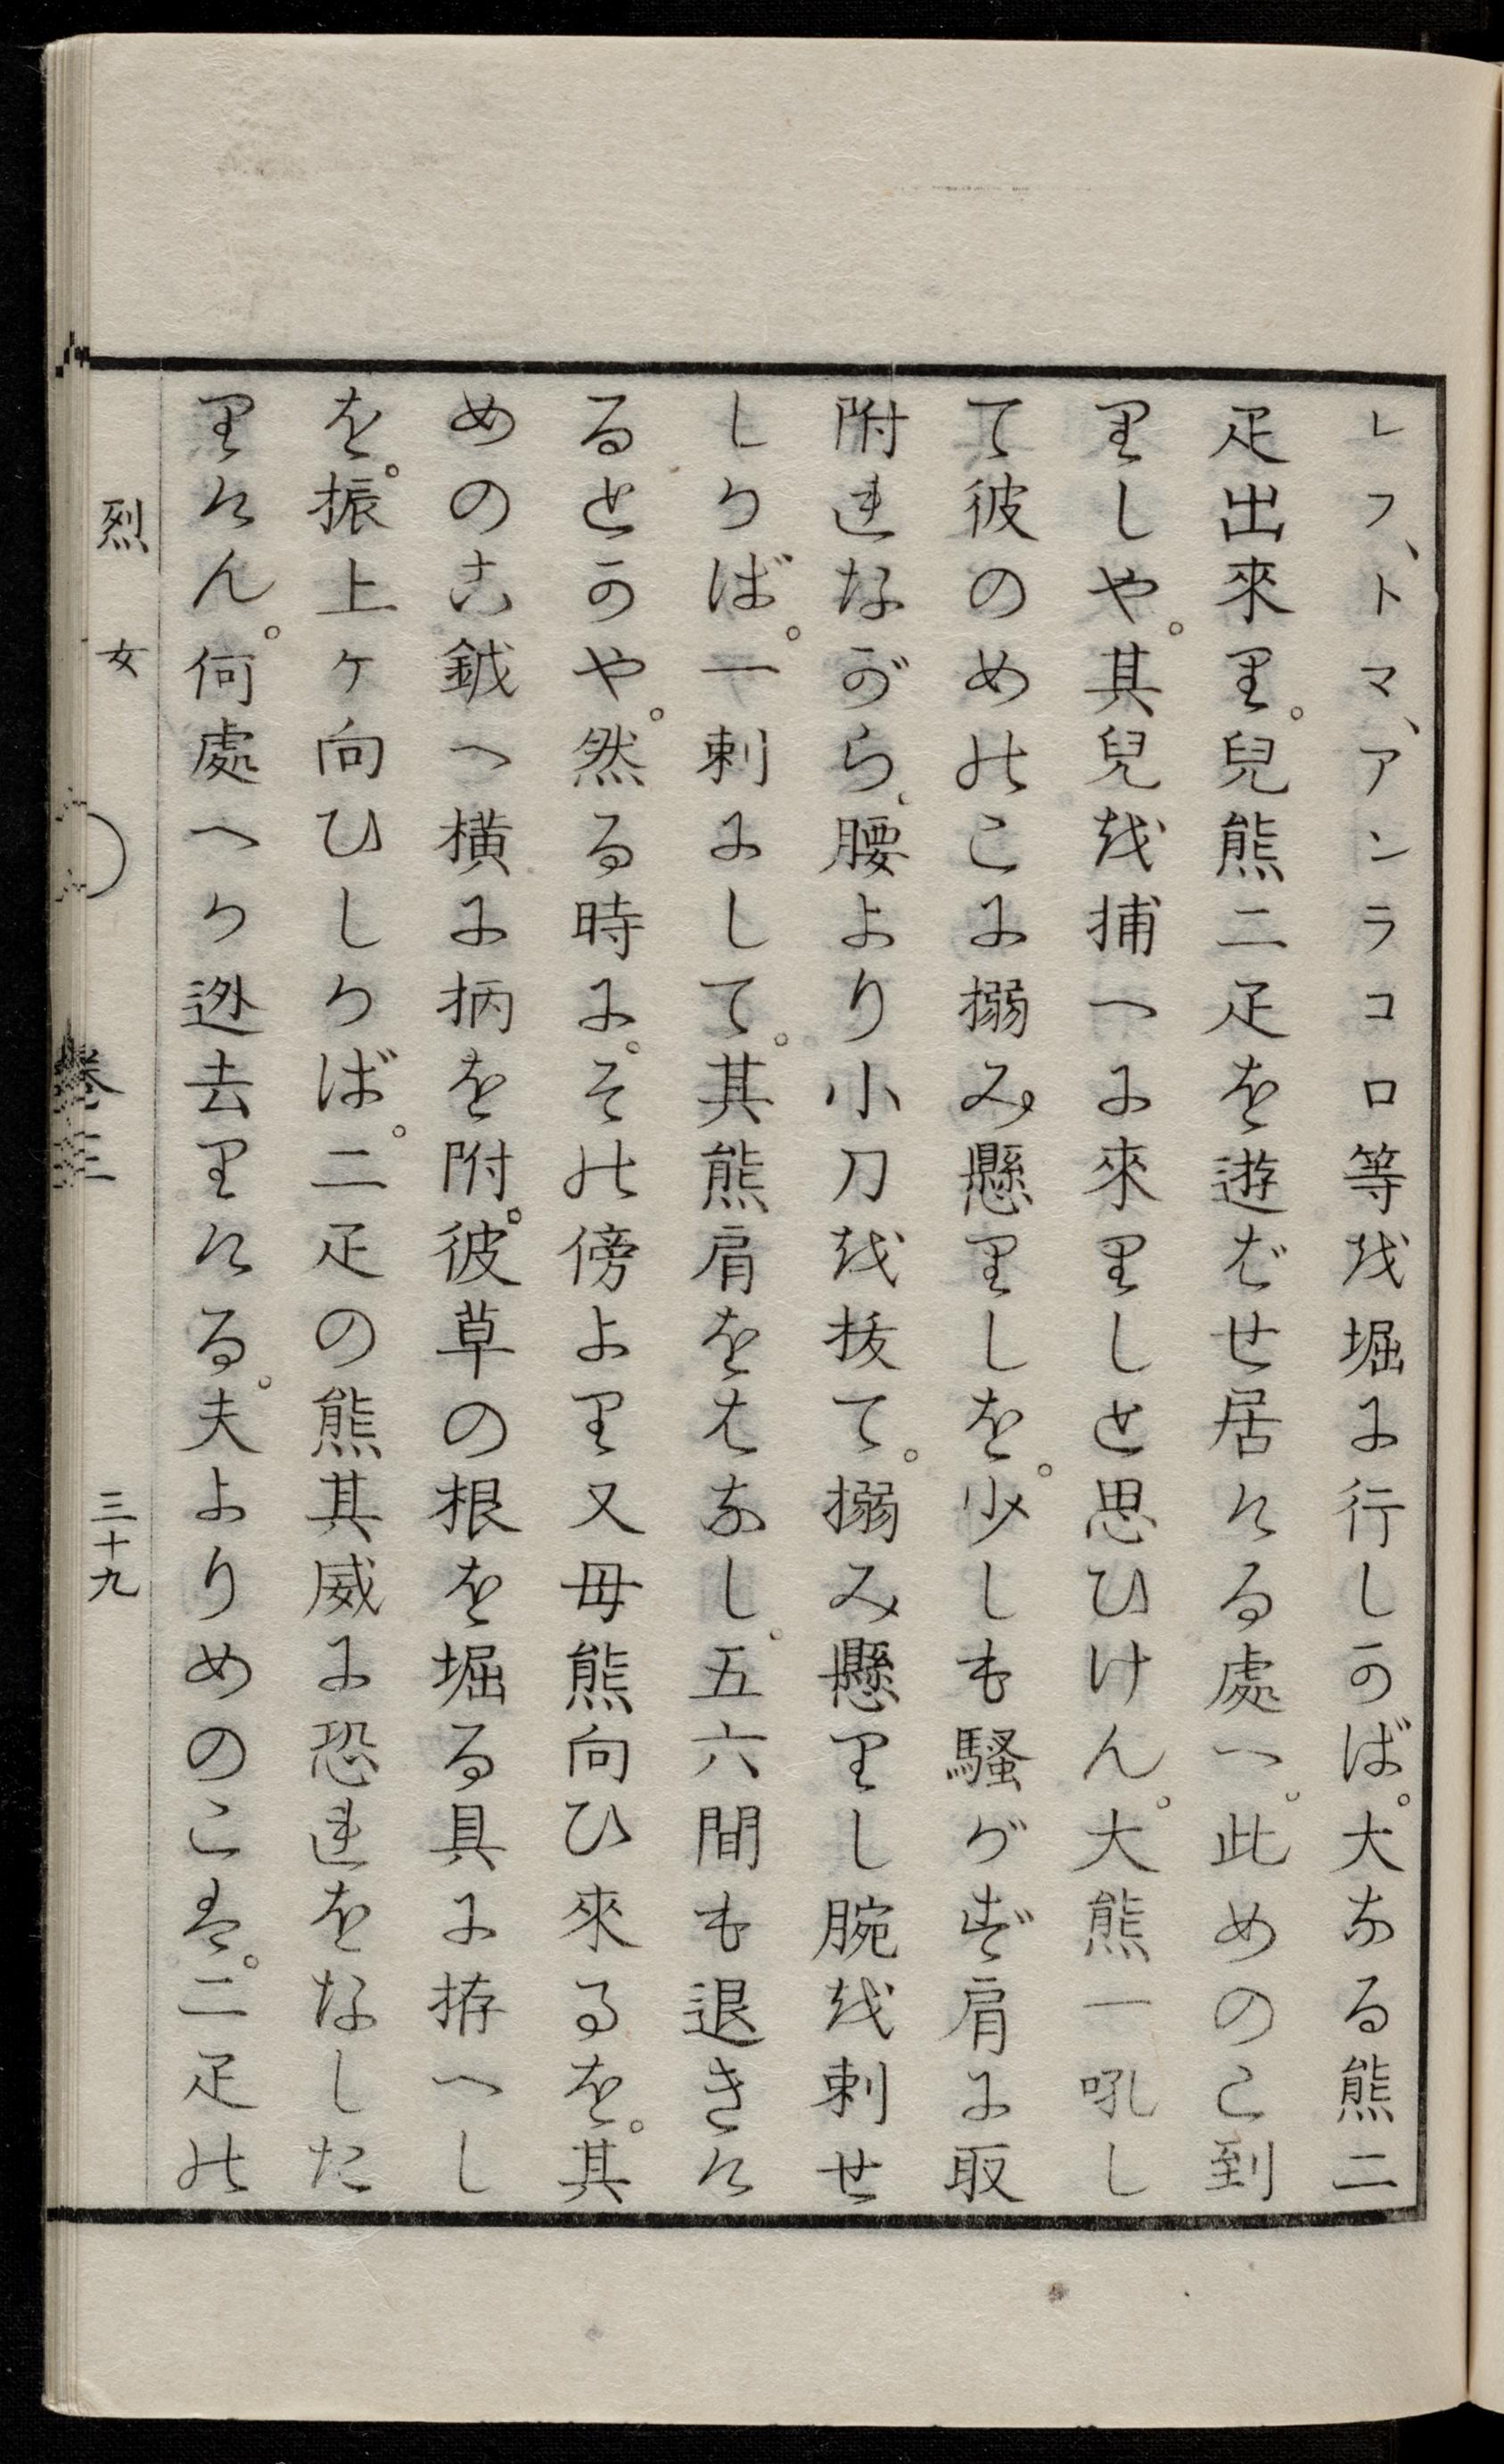 レフ、トマ、アンラコロ等を堀に行しかば。大なる熊二
疋出來り。兒熊二疋を遊ばせ居ける處へ。此めのこ到
りしや。其兒を捕へに來りしと思ひけん。大熊一吼し
て彼のめのこに搦み懸りしを。少しも騷がず肩に取
附れながら、腰より小刀を抜て。搦み懸りし腕を刺せ
しかば。一刺にして。其熊肩をはなし。五六間も退きけ
るとかや。然る時に。その傍より又毋熊向ひ來るを。其
めのこ鉞へ横に柄を附。彼草の根を堀る具に拵へし
を。振上ケ向ひしかば。二疋の熊其威に恐れをなした
りけん。何處へか迯去りける。夫よりめのこは。二疋の
烈女 卷三 三十九